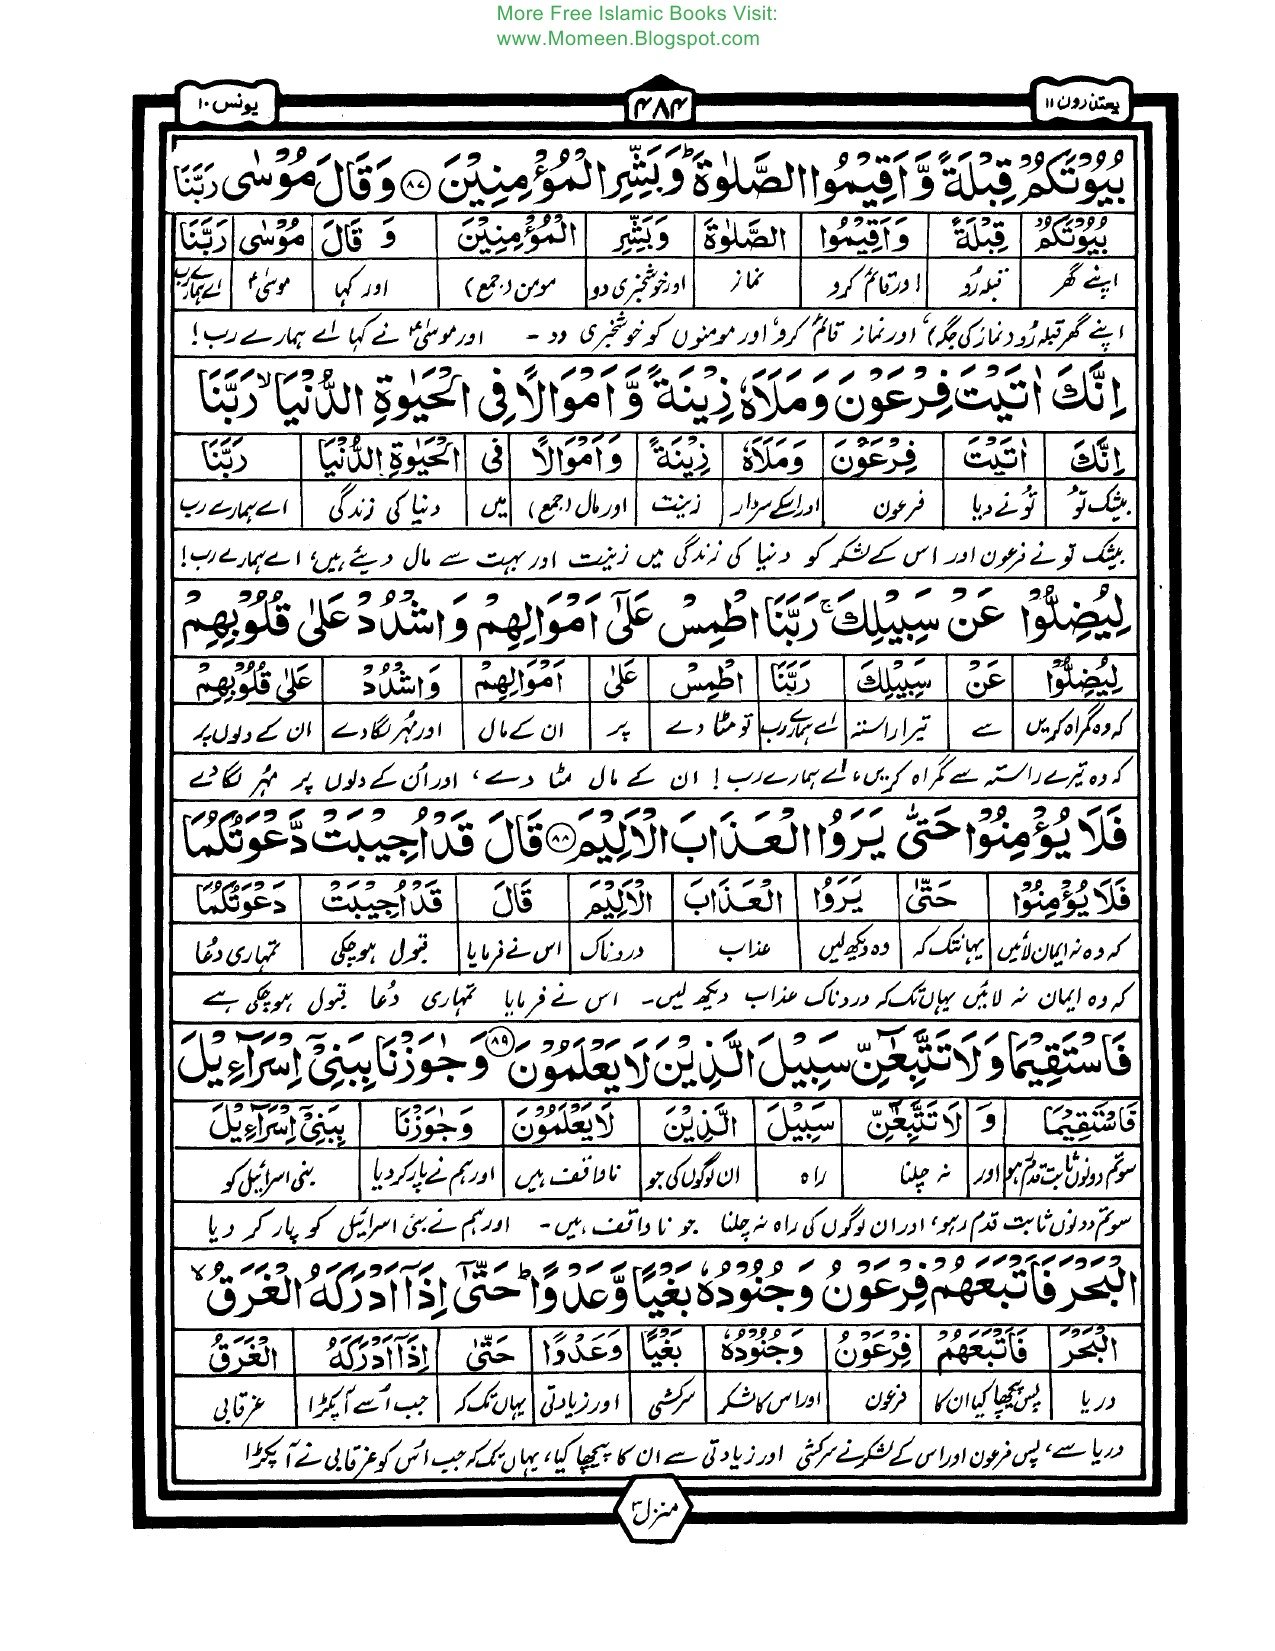 More Free Islamic Books Visit:
www.Momeen.Blogspot.com
یعتذرون ۱۱
۴۸۴
یونس ۱۰
بُيُوْتَكُمْ قِبْلَةً وَّاَقِيْمُوا الصَّلٰوةَ ؕ وَبَشِّرِ الْمُؤْمِنِيْنَ ﴿۸۷﴾ وَقَالَ مُوْسٰى رَبَّنَا
بُيُوْتَكُمْ قِبْلَةً وَاَقِيْمُوا الصَّلٰوةَ وَبَشِّرِ الْمُؤْمِنِيْنَ وَ قَالَ مُوْسٰى رَبَّنَا
اپنے گھر قبلہ رُو اور قائم کرو نماز اور خوشخبری دو مومن (جمع) اور کہا موسیٰؑ اے ہمارے رب
اپنے گھر قبلہ رُو (نماز کی جگہ) اور نماز قائم کرو، اور مومنوں کو خوشخبری دو۔ اور موسیٰؑ نے کہا اے ہمارے رب!
اِنَّكَ اٰتَيْتَ فِرْعَوْنَ وَمَلَاَهٗ زِيْنَةً وَّاَمْوَالًا فِى الْحَيٰوةِ الدُّنْيَا ۙ رَبَّنَا
اِنَّكَ اٰتَيْتَ فِرْعَوْنَ وَمَلَاَهٗ زِيْنَةً وَاَمْوَالًا فِى الْحَيٰوةِ الدُّنْيَا رَبَّنَا
بیشک تُو تُو نے دیا فرعون اور اسکے سردار زینت اور مال (جمع) میں دنیا کی زندگی اے ہمارے رب
بیشک تو نے فرعون اور اس کے لشکر کو دنیا کی زندگی میں زینت اور بہت سے مال دیئے ہیں، اے ہمارے رب!
لِيُضِلُّوْا عَنْ سَبِيْلِكَ ۚ رَبَّنَا اطْمِسْ عَلٰٓى اَمْوَالِهِمْ وَاشْدُدْ عَلٰى قُلُوْبِهِمْ
لِيُضِلُّوْا عَنْ سَبِيْلِكَ رَبَّنَا اطْمِسْ عَلٰى اَمْوَالِهِمْ وَاشْدُدْ عَلٰى قُلُوْبِهِمْ
کہ وہ گمراہ کریں سے تیرا راستہ اے ہمارے رب تو مٹا دے پر ان کے مال اور مُہر لگا دے ان کے دلوں پر
کہ وہ تیرے راستہ سے گمراہ کریں، اے ہمارے رب! ان کے مال مٹا دے، اور اُن کے دلوں پر مہر لگا دے
فَلَا يُؤْمِنُوْا حَتّٰى يَرَوُا الْعَذَابَ الْاَلِيْمَ ﴿۸۸﴾ قَالَ قَدْ اُجِيْبَتْ دَّعْوَتُكُمَا
فَلَا يُؤْمِنُوْا حَتّٰى يَرَوُا الْعَذَابَ الْاَلِيْمَ قَالَ قَدْ اُجِيْبَتْ دَعْوَتُكُمَا
کہ وہ نہ ایمان لائیں یہانتک کہ وہ دیکھ لیں عذاب دردناک اس نے فرمایا قبول ہو چکی تمہاری دُعا
کہ وہ ایمان نہ لائیں یہاں تک کہ دردناک عذاب دیکھ لیں۔ اس نے فرمایا تمہاری دُعا قبول ہو چکی ہے
فَاسْتَقِيْمَا وَلَا تَتَّبِعٰٓنِّ سَبِيْلَ الَّذِيْنَ لَا يَعْلَمُوْنَ ﴿۸۹﴾ وَجٰوَزْنَا بِبَنِىْٓ اِسْرَآءِيْلَ
فَاسْتَقِيْمَا وَ لَا تَتَّبِعٰٓنِّ سَبِيْلَ الَّذِيْنَ لَا يَعْلَمُوْنَ وَجٰوَزْنَا بِبَنِىْٓ اِسْرَآءِيْلَ
سو تم دونوں ثابت قدم رہو اور نہ چلنا راہ ان لوگوں کی جو ناواقف ہیں اور ہم نے پار کر دیا بنی اسرائیل کو
سو تم دونوں ثابت قدم رہو، اور ان لوگوں کی راہ نہ چلنا جو ناواقف ہیں۔ اور ہم نے بنی اسرائیل کو پار کر دیا
الْبَحْرَ فَاَتْبَعَهُمْ فِرْعَوْنُ وَجُنُوْدُهٗ بَغْيًا وَّعَدْوًا ؕ حَتّٰٓى اِذَآ اَدْرَكَهُ الْغَرَقُ ۙ
الْبَحْرَ فَاَتْبَعَهُمْ فِرْعَوْنُ وَجُنُوْدُهٗ بَغْيًا وَعَدْوًا حَتّٰٓى اِذَآ اَدْرَكَهُ الْغَرَقُ
دریا پس پیچھا کیا ان کا فرعون اور اس کا لشکر سرکشی اور زیادتی یہاں تک کہ جب اُسے آ پکڑا غرقابی
دریا سے، پس فرعون اور اس کے لشکر نے سرکشی اور زیادتی سے ان کا پیچھا کیا، یہاں تک کہ جب اُس کو غرقابی نے آ پکڑا
منزل ۳